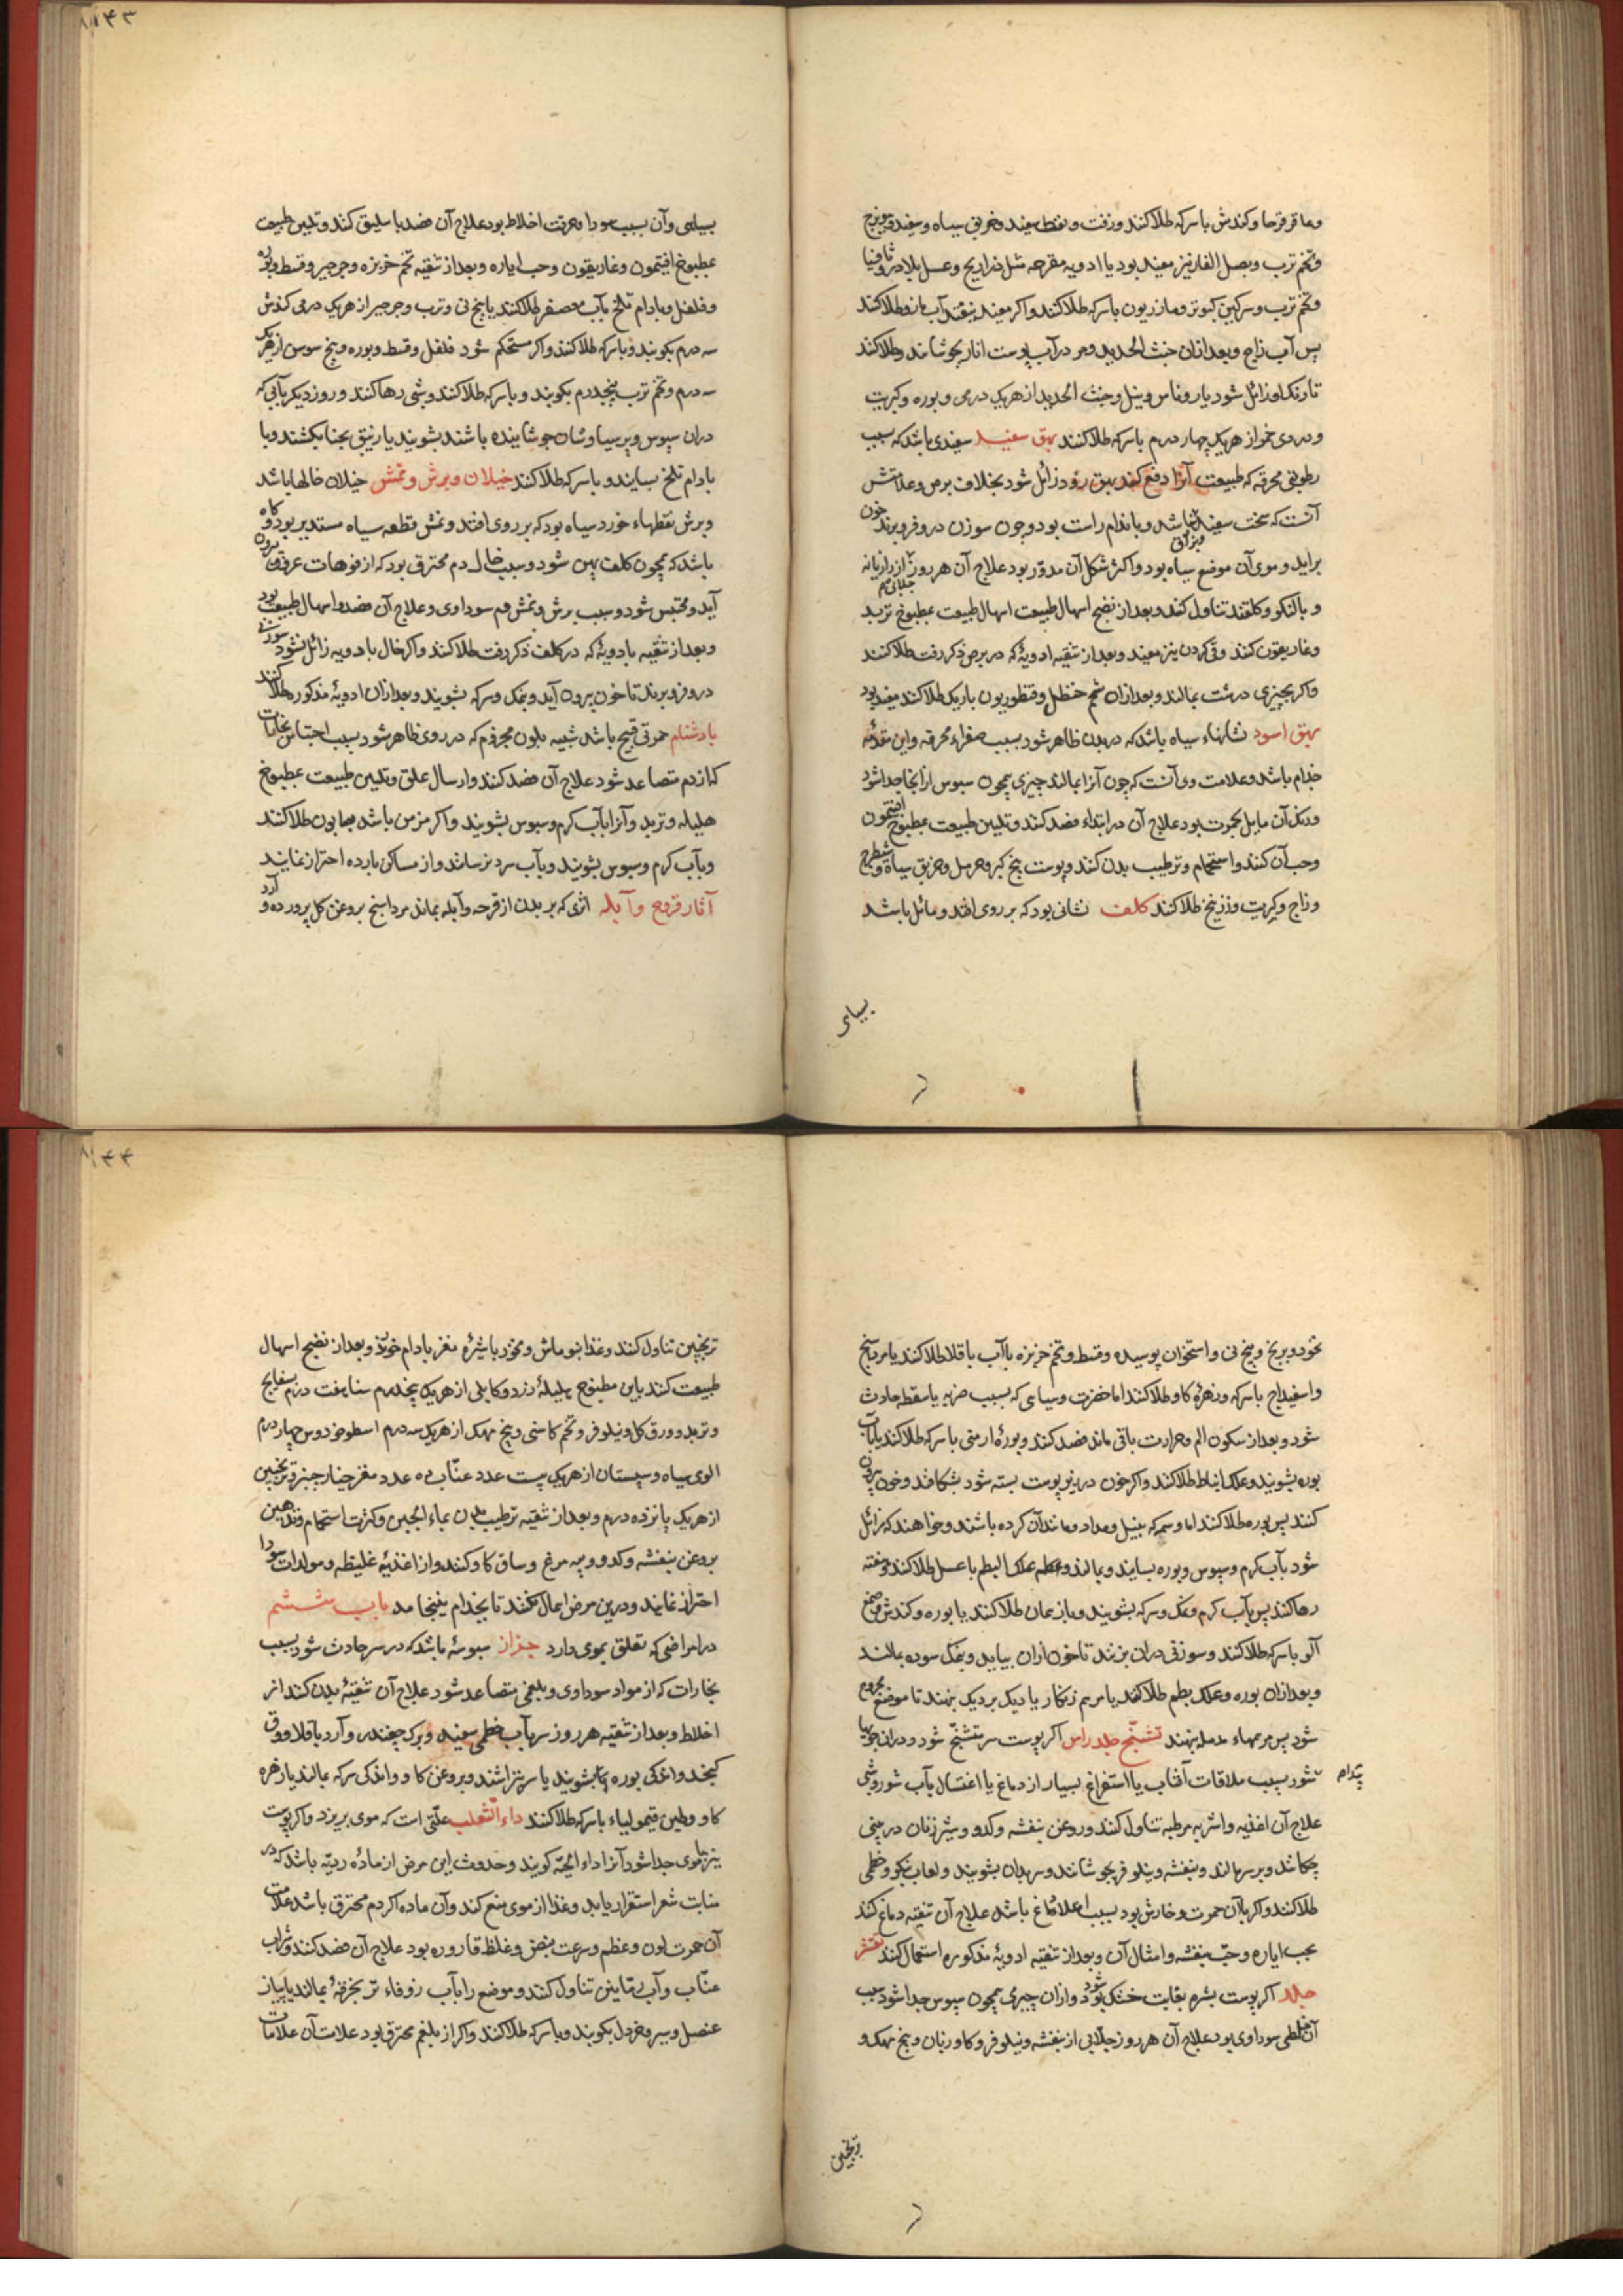 وعاقرقرحا وکندش باسرکه طلا کنند وزفت ونفط سفید وخربق سیاه وسفید ومویزج
وتخم ترب وبصل الفار نیز مفید بود یا ادویه مقرحه مثل ذراریح وعسل بلادر وثافیا
وتخم ترب وسرکین کبوتر ومازریون باسرکه طلا کنند واکر مفید نیفتد آب مازو طلا کنند
پس آب زاج وبعد ازان خبث الحدید ومر در آب پوست انار بجوشانند وطلا کنند
تا رنک او زائل شود یا روناس ونیل وخبث الحدید از هریک درمی وبوره وکبریت
ودردی خمر از هریک چهار درم باسرکه طلا کنند بهق سفید سفیدی باشد که بسبب
رطوبتی محرقه که طبیعت آنرا دفع کند بهق زود زائل شود بخلاف برص وعلامتش
آنست که سخت سفید نباشد وباندام راست بود وچون سوزن درو فرو برند خون
براید وموی آن موضع سیاه بود واکثر شکل آن مدور بود علاج آن هر روز از رازیانه
وبالنکو وکلقند تناول کند وبعد از نضج اسهال طبیعت اسهال طبیعت بمطبوخ تربد
وغاریقون کنند وقی کردن نیز مفید وبعد از تنقیه ادویهٔ که در برص ذکر رفت طلا کنند
واکر بچیزی درشت بمالند وبعد ازان شحم حنظل وقنطوریون باریک طلا کنند مفید بود
بهق اسود نشانهاء سیاه باشد که در بدن ظاهر شود بسبب صفراء محرقه واین مقدمه
جذام باشد وعلامت وی آنست که چون آنرا بمالند چیزی همچون سبوس از انجا جدا شود
ورنک آن مایل بحمرت بود علاج آن در ابتداء فصد کنند وتلیین طبیعت بمطبوخ افتیمون
وحب آن کنند واستحمام وترطیب بدن کنند وپوست بیخ کبر وحرمل وخربق سیاه وشیطرج
وزاج وکبریت وزرنیخ طلا کنند کلف نشانی بود که بر روی افتد ومائل باشد
بسیاهی
۱۴۳
بسیاهی وآن بسبب سودا وحرقت اخلاط بود علاج آن فصد باسلیق کنند وتلیین طبیعت
بمطبوخ افتیمون وغاریقون وحب ایاره وبعد از تنقیه تخم خربزه وجرجیر وقسط وبوره
وفلفل وبادام تلخ بآب معصفر طلا کنند یا بیخ نی وترب وجرجیر از هریک درمی کندش
سه درم بکوبند وباسرکه طلا کنند واکر مستحکم شود فلفل وقسط وبوره وبیخ سوسن از هریک
سه درم وتخم ترب پنجدرم بکوبند وباسرکه طلا کنند وشبی رها کنند وروز دیکر بآبی که
دران سبوس وپرسیاوشان جوشانیده باشند بشویند یا زیبق بحنا بکشند وبا
بادام تلخ بسایند وباسرکه طلا کنند خیلان وبرش ونمش خیلان خالها باشد
وبرش نقطهاء خورد سیاه بود که بر روی افتد ونمش قطعه سیاه مستدیر بود وکاه
باشد که همچون کلف پهن شود وسبب خال دم محترق بود که از فوهات عروق بیرون
آید ومحتبس شود وسبب برش ونمش دم سوداوی وعلاج آن فصد واسهال طبیعت بود
وبعد از تنقیه بادویهٔ که در کلف ذکر رفت طلا کنند واکر خال بادویه زائل نشود سوزنی
درو فرو برند تا خون بیرون آید وبنمک وسرکه بشویند وبعد ازان ادویهٔ مذکور طلا کنند
بادشنام حمرتی قبیح باشد شبیه بلون مجذوم که در روی ظاهر شود بسبب احتباس بخارات
که از دم متصاعد شود علاج آن فصد کنند وارسال علق وتلیین طبیعت بمطبوخ
هلیله وتربد وآنرا بآب کرم وسبوس بشویند واکر مزمن باشد بصابون طلا کنند
وبآب کرم وسبوس بشویند وبآب سرد نرسانند واز مساکن بارده احتراز نمایند
آثار قروح وآبله اثری که بر بدن از قرحه وآبله بماند مرداسنج بروغن کل پرورده وآرد
نخود وبرنج وبیخ نی واستخوان پوسیده وقسط وتخم خربزه باآب باقلا طلا کنند یا مرداسنج
واسفیداج باسرکه وزهرهٔ کاو طلا کنند اما خضرت وسیاهی که بسبب ضربه یا سقطه حادث
شود وبعد از سکون الم وحرارت باقی ماند فصد کنند وبورهٔ ارمنی باسرکه طلا کنند یا بآب
بوره بشویند وعلک انباط طلا کنند واکر خون در زیر پوست بسته شود بشکافند وخون بیرون
کنند پس بوره طلا کنند اما وسم که بنیل ومداد ومانند آن کرده باشند وخواهند که زائل
شود بآب کرم وسبوس وبوره بسایند وبمالند وعلک البطم باعسل طلا کنند وهفته
رها کنند پس بآب کرم ونمک وسرکه بشویند وباز همان طلا کنند یا بوره وکندش وصمغ
آلو باسرکه طلا کنند وسوزنی دران بزنند تا خون ازان بیاید وبنمک سوده بمالند
وبعد ازان بوره وعلک بطم طلا کنند یا مرهم زنکار یا دیک بردیک بنهند تا موضع مجروح
شود پس مرهمهاء مدمله بنهند تشنج جلد راس اکر پوست سر متشنج شود ودران جویها
پدام
شود بسبب ملاقات آفتاب یا استفراغ بسیار از دماغ یا اغتسال بآب شور وشبی
علاج آن اغذیه واشربه مرطبه تناول کنند وروغن بنفشه وکدو وشیر زنان در بینی
چکانند وبر سر مالند وبنفشه ونیلوفر بجوشانند وسر بدان بشویند ولعاب بنکو وخطمی
طلا کنند واکر باآن حمرت وخارش بود بسبب امتلاء دماغ باشد علاج آن تنقیه دماغ کنند
بحب ایاره وحب بنفشه وامثال آن وبعد از تنقیه ادویهٔ مذکوره استعمال کنند تقشر
جلد اکر پوست بشره بغایت خشک شود وازان چیزی همچون سبوس جدا شود سبب
آن خلطی سوداوی بود علاج آن هر روز جلابی از بنفشه ونیلوفر وکاوزبان وبیخ مهک و
ترنجبین
۱۴۴
ترنجبین تناول کنند وغذا نوماش ونخود باشیرهٔ مغز بادام خورند وبعد از نضج اسهال
طبیعت کنند باین مطبوخ هلیلهٔ زرد وکابلی از هریک پنجدرم سنا هفت درم بسفایج
وتربد وورق کل ونیلوفر وتخم کاسنی وبیخ مهک از هریک سه درم اسطوخودوس چهار درم
الوی سیاه وسپستان از هریک بیست عدد عناب ده عدد مغز خیارچنبر وترنجبین
از هریک پانزده درم وبعد از تنقیه ترطیب بدن بماء الجبن وکثرت استحمام وتدهین
بروغن بنفشه وکدو وپیه مرغ وساق کاو کنند واز اغذیهٔ غلیظه ومولدات سودا
احتراز نمایند ودرین مرض اهمال نکنند تا بجذام نینجامد باب ششم
در امراضی که تعلق بموی دارد حزاز سبوسهٔ باشد که در سر حادث شود بسبب
بخارات که از مواد سوداوی وبلغمی متصاعد شود علاج آن تنقیهٔ بدن کنند از
اخلاط وبعد از تنقیه هر روز سر بآب خطمی سفید وبرک چغندر وآرد باقلا وورق
کنجد واندکی بوره بشویند یا سر بتراشند وبروغن کاو واندکی سرکه بمالند یا زهره
کاو وطین قیمولیاء باسرکه طلا کنند داء الثعلب علتی است که موی بریزد واکر پوست
نیز باموی جدا شود آنرا داء الحیه کویند وحدوث این مرض از مادهٔ ردیه باشد که در
منابت شعر استقرار یابد وغذا از موی منع کند وآن ماده اکر دم محترق باشد علامت
آن حمرت لون وعظم وسرعت نبض وغلظ قاروره بود علاج آن فصد کنند وشراب
عناب وآب رمانین تناول کنند وموضع را بآب زوفاء تر بخرقهٔ بمالند یا پیاز
عنصل وسیر وخردل بکوبند وباسرکه طلا کنند واکر از بلغم محترق بود علامت آن علامات